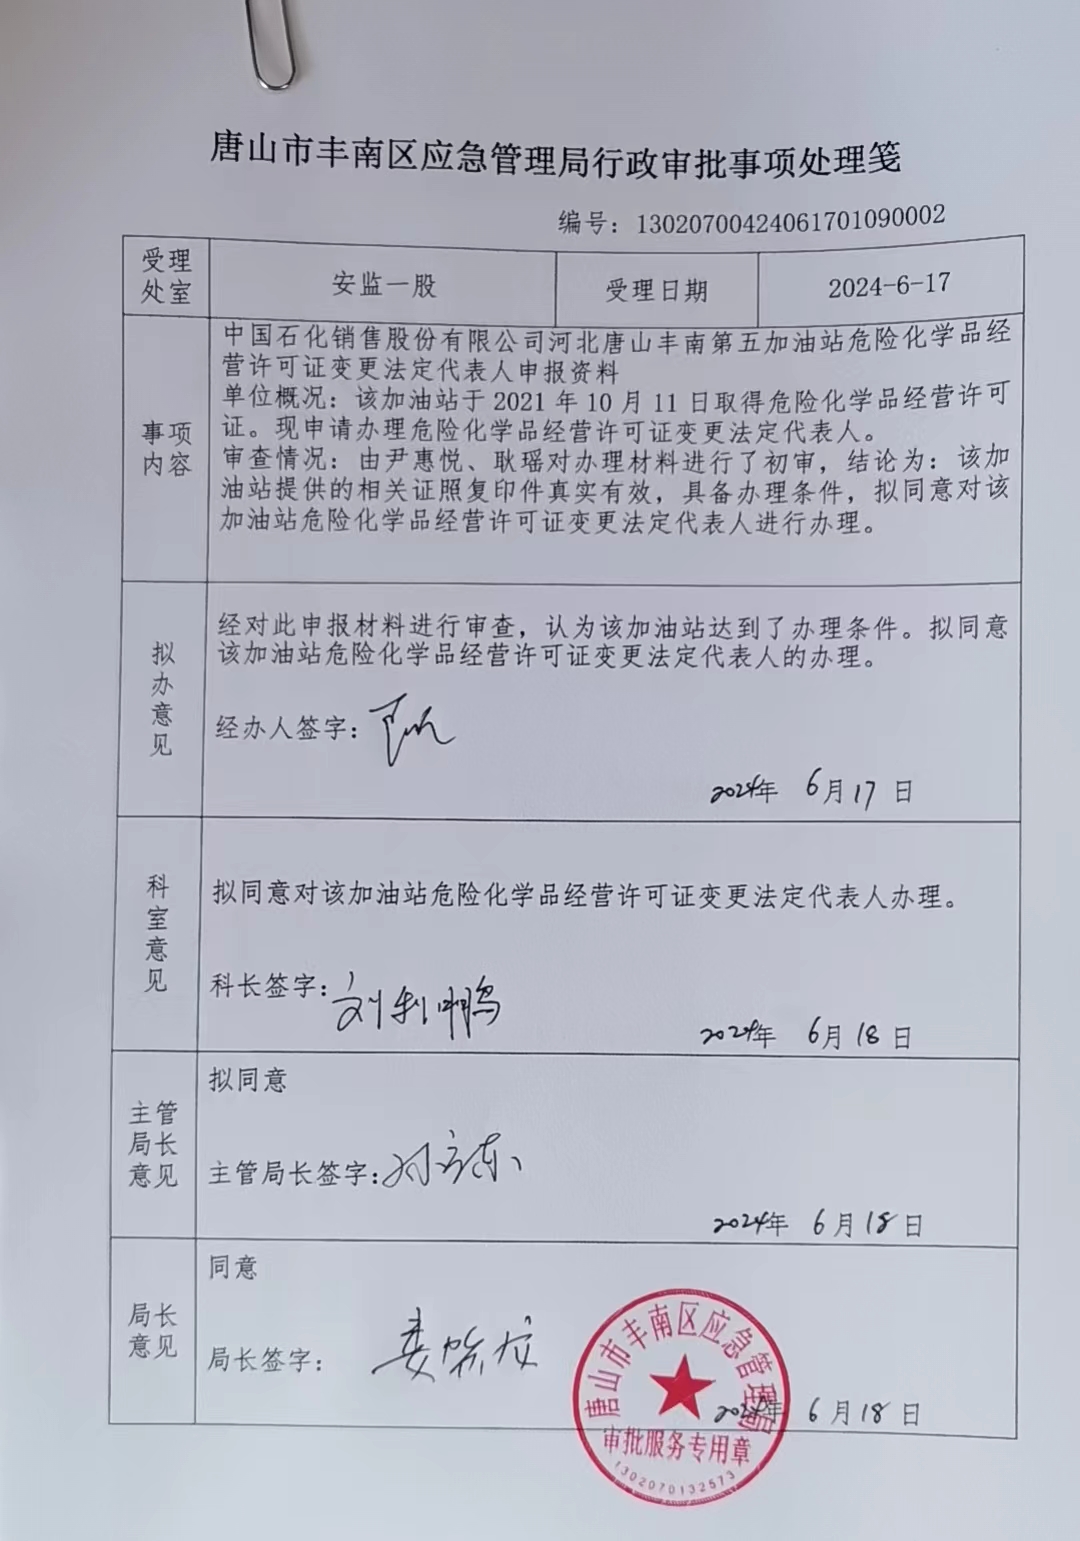 唐山市丰南区应急管理局行政审批事项处理笺
编号：13020700424061701090002
受理
处室
安监一股
受理日期
2024-6-17
事项
内容
中国石化销售股份有限公司河北唐山丰南第五加油站危险化学品经
营许可证变更法定代表人申报资料
单位概况：该加油站于 2021 年 10 月 11 日取得危险化学品经营许可
证。现申请办理危险化学品经营许可证变更法定代表人。
审查情况：由尹惠悦、耿瑶对办理材料进行了初审，结论为：该加
油站提供的相关证照复印件真实有效，具备办理条件，拟同意对该
加油站危险化学品经营许可证变更法定代表人进行办理。
拟
办
意
见
经对此申报材料进行审查，认为该加油站达到了办理条件。拟同意
该加油站危险化学品经营许可证变更法定代表人的办理。
经办人签字：
2024年 6月17日
科
室
意
见
拟同意对该加油站危险化学品经营许可证变更法定代表人办理。
科长签字：刘利鹏
2024年 6月18日
主管
局长
意见
拟同意
主管局长签字：
2024年 6月18日
局长
意见
同意
局长签字：
2024年 6月18日
唐山市丰南区应急管理局
审批服务专用章
1302070132573